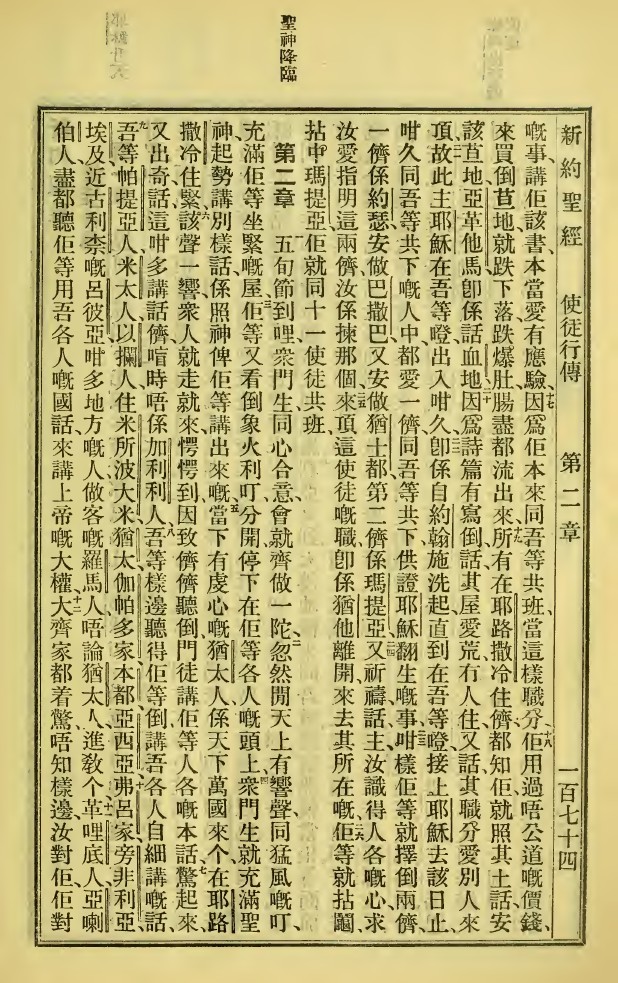 聖神降臨
新約聖經 使徒行傳 第二章 一百七十四
嘅事、講佢該書本當愛有應驗、十七因爲佢本來同吾等共班、當這樣職分、十八佢用過唔公道嘅價錢、
來買倒苴地、就跌下落、跌爆肚、腸盡都流出來、十九所有在耶路撒冷住儕都知、佢就照其土話、安
該苴地亞革他馬、卽係話血地、二十因爲詩篇有寫倒話、其屋愛荒冇人住、又話、其職分愛別人來
頂、二一故此主耶穌在吾等噔出入咁久、二二卽係自約翰施洗起、直到在吾等噔接上耶穌去該日止、
咁久同吾等共下嘅人中、都愛一儕同吾等共下供證耶穌翻生嘅事、二三咁樣佢等就擇倒兩儕、
一儕係約瑟、安做巴撒巴、又安做猶士都、第二儕係瑪提亞、二四又祈禱話、主汝識得人各嘅心、求
汝愛指明這兩儕、汝係揀那個、二五來頂這使徒嘅職、卽係猶他離開來去其所在嘅、二六佢等就拈鬮、
拈中瑪提亞、佢就同十一使徒共班、
第二章 一五旬節到哩、衆門生同心合意、會就齊做一陀、二忽然聞天上有響聲、同猛風嘅叮、
充滿佢等坐緊嘅屋、三佢等又看倒象火利叮、分開停下在佢等各人嘅頭上、四衆門生就充滿聖
神、起勢講別樣話、係照神俾佢等講出來嘅、五當下有虔心嘅猶太人、係天下萬國來个、在耶路
撒冷住緊、六該聲一響、衆人就走就來、愕愕到、因致儕儕聽倒門徒講佢等人各嘅本話、七驚起來、
又出奇話、這咁多講話儕、啀時唔係加利利人、八吾等樣邊聽得佢等倒講吾各人自細講嘅話、
九吾等帕提亞人、米太人、以攔人、住米所波大米、猶太、伽帕多家、本都、亞西亞、十弗呂家、旁非利亞、
埃及、近古利柰嘅呂彼亞、咁多地方嘅人、做客嘅羅馬人、唔論猶太人、進敎个、十一革哩底人、亞喇
伯人、盡都聽佢等用吾各人嘅國話、來講上帝嘅大權、十二大齊家都着驚、唔知樣邊、汝對佢佢對